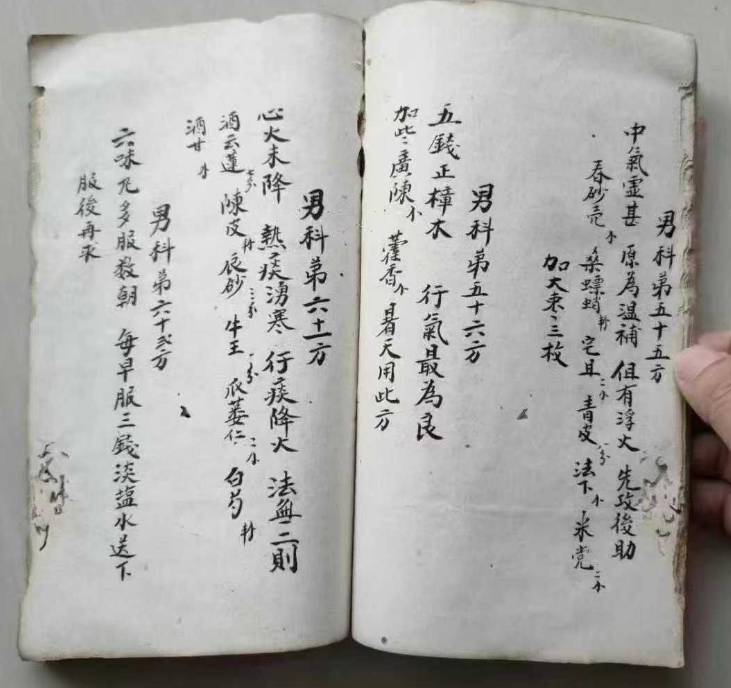 男科第五十五方
中氣虛甚 原為溫補 但有浮火 先攻後助
春砂壳 桑螵蛸 宅且 青皮 法下 米党
加大枣三枚
男科第五十六方
五錢正樟木 行氣最為良
加些廣陳 藿香 暑天用此方
男科第六十一方
心火未降 熱痰湧寒 行痰降火 法無二則
酒云蓮 陳皮 辰砂 牛王 瓜蒌仁 白芍
酒甘
男科第六十弍方
六味丸多服数朝 每早服三錢淡塩水送下
服後再求